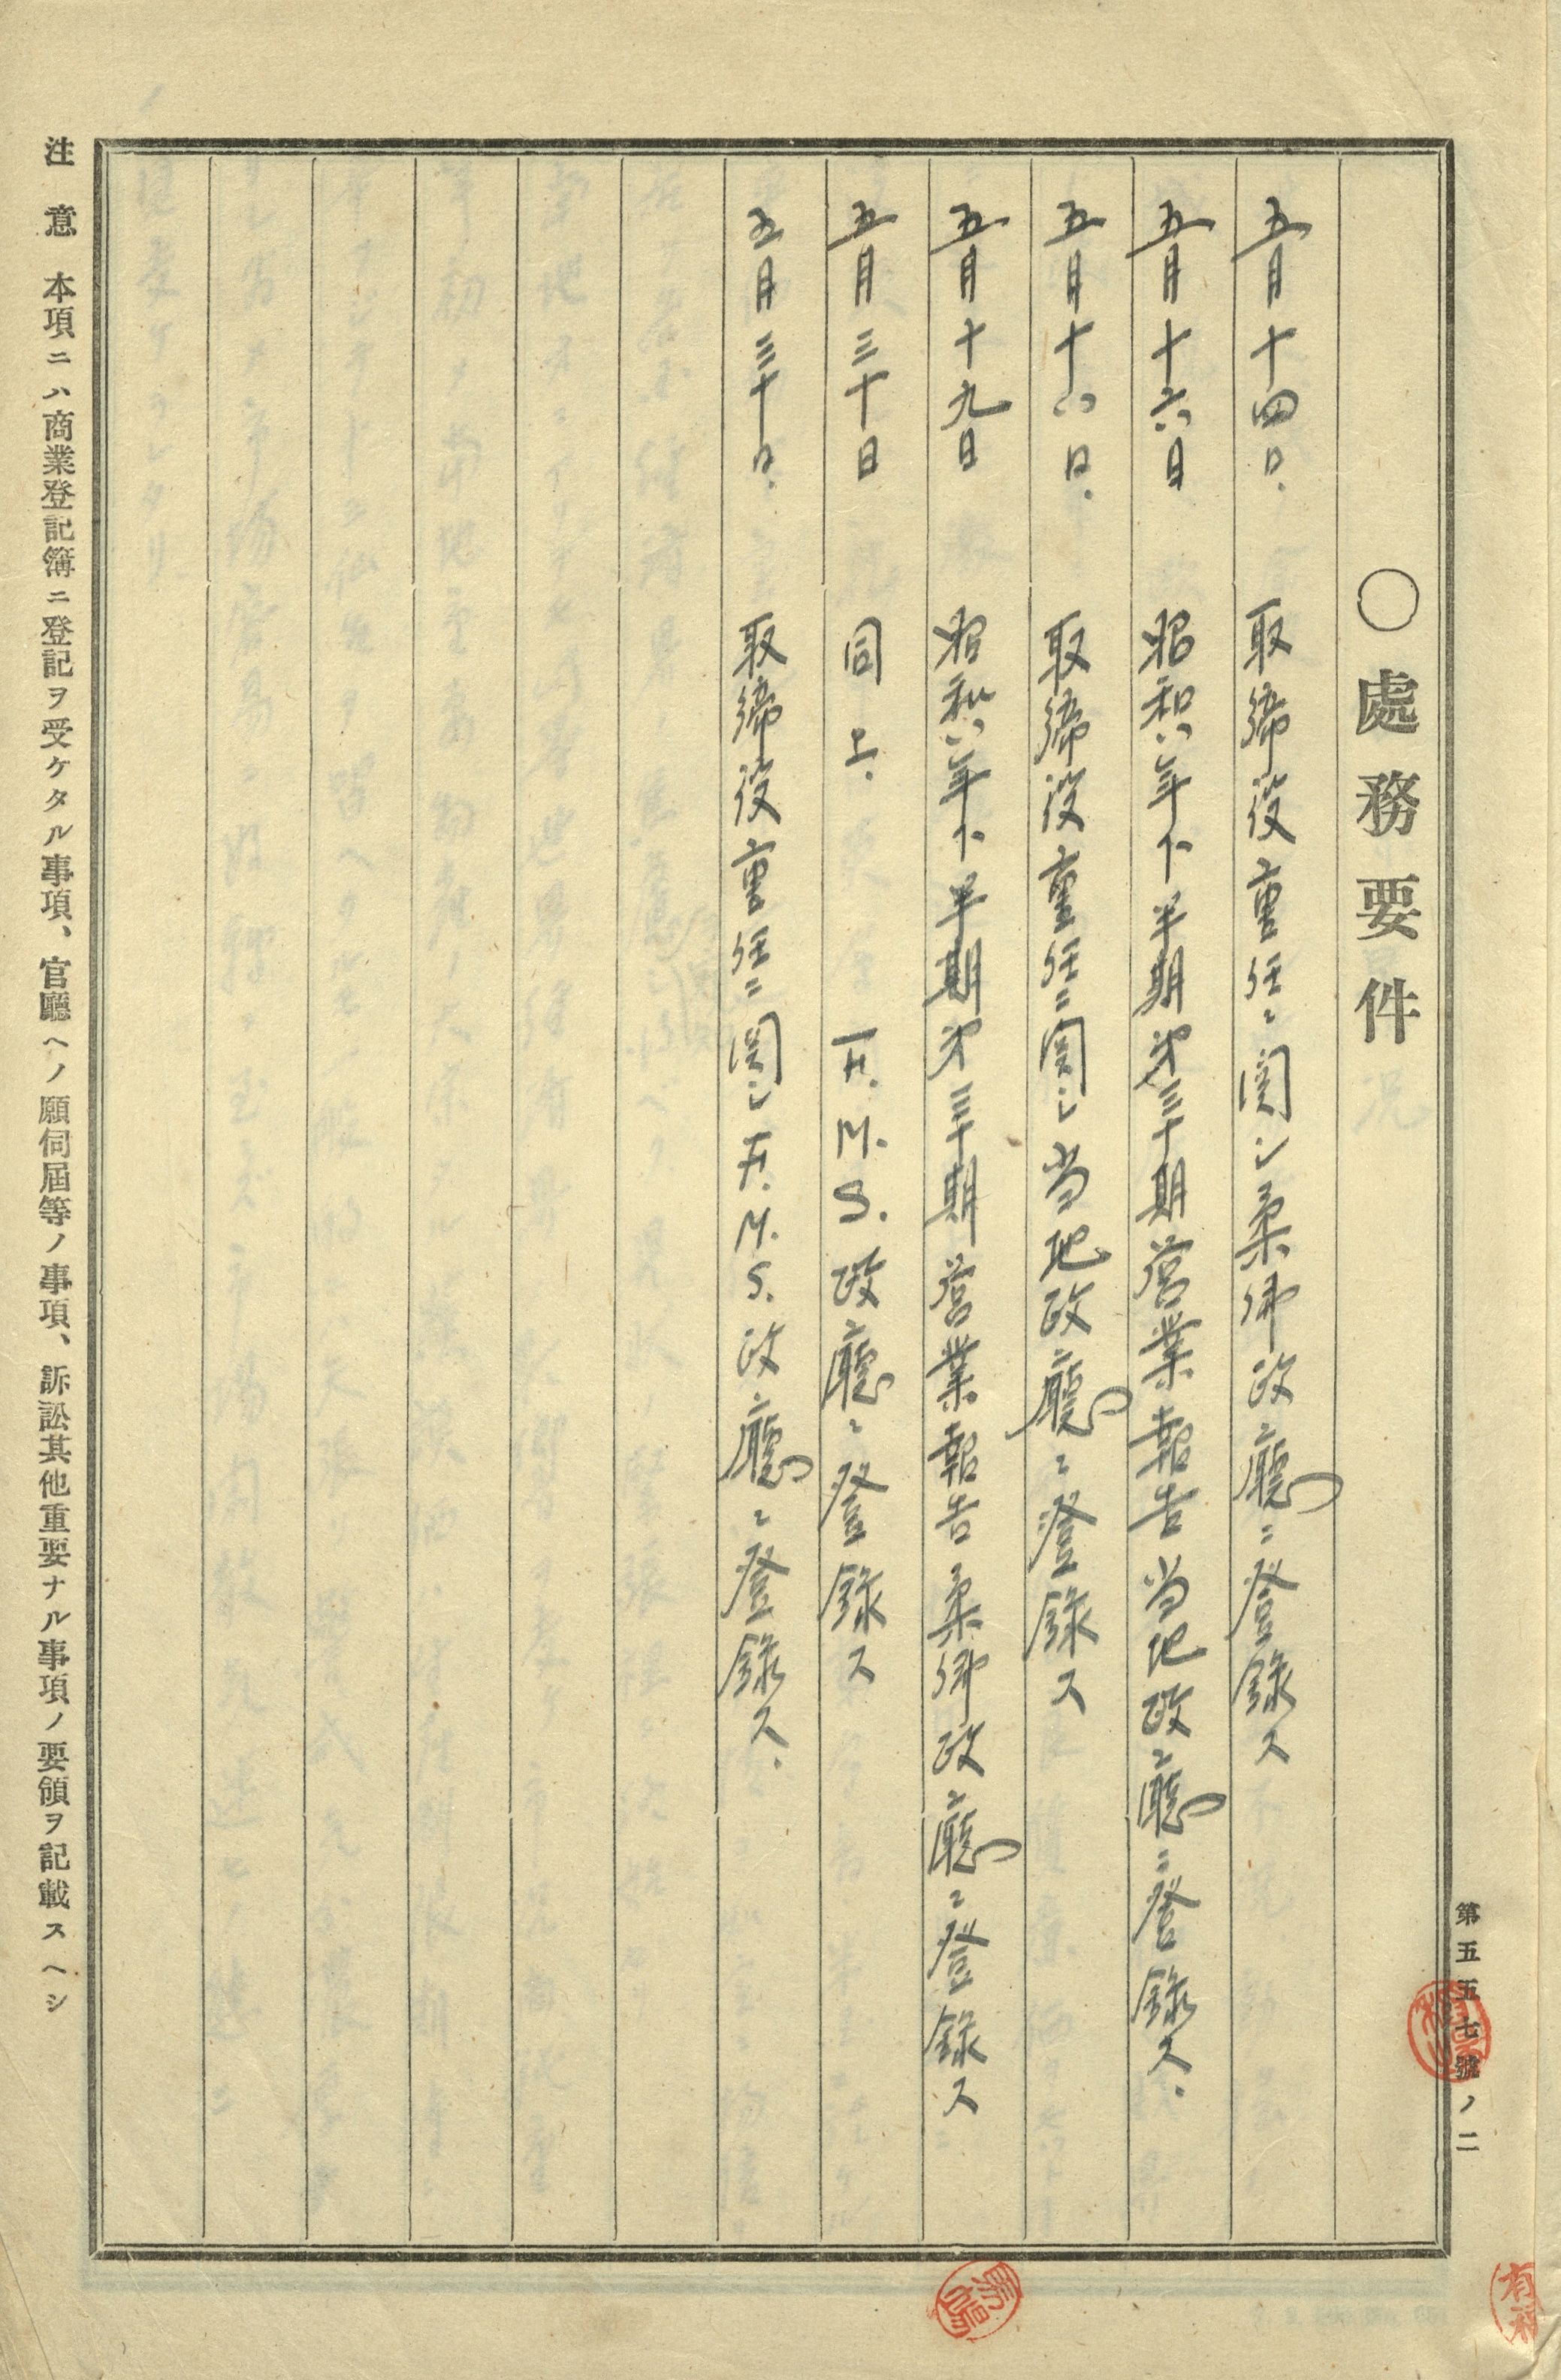 第五五七號ノ二
○處務要件
五月十四日. 取締役重任ニ関シ柔佛政廳ニ登録ス
五月十六日 昭和八年下半期第三十期営業報告当地政廳ニ登録ス.
五月十八日. 取締役重任ニ関シ当地政廳ニ登録ス
五月十九日 昭和八年下半期第三十期営業報告柔佛政廳ニ登録ス
五月三十日 同上. F.M.S.政廳ニ登録ス
五月三十日. 取締役重任ニ関シF.M.S.政廳ニ登録ス.
注意 本項ニハ商業登記簿ニ登記ヲ受ケタル事項、官廳ヘノ願伺屆等ノ事項、訴訟其他重要ナル事項ノ要領ヲ記載スヘシ